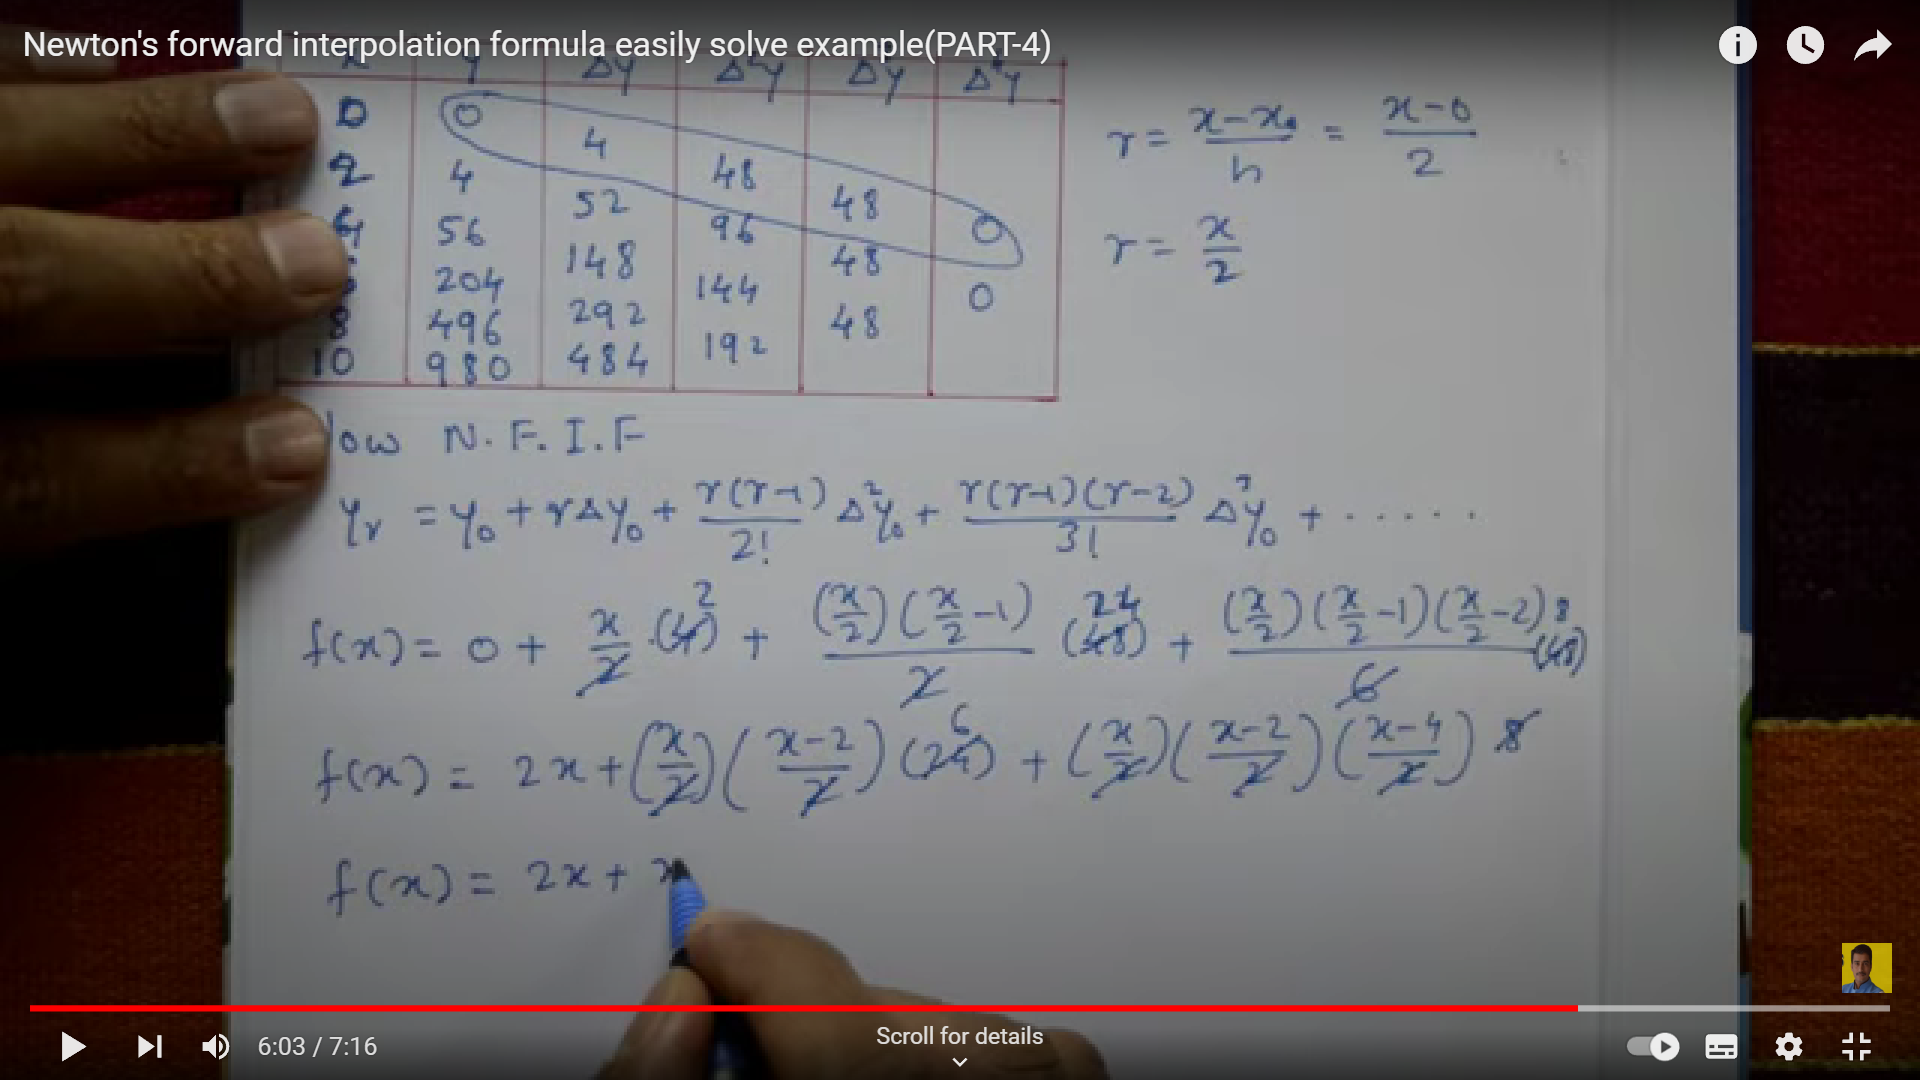 Newton's forward interpolation formula easily solve example(PART-4)
x y Δy Δ²y Δy Δ⁴y
0 0
4
2 4 48
52 48
4 56 96 0
148 48
204 144 0
292 48
8 496 192
10 980 484
r = x-x₀/h = x-0/2
r = x/2
Now N.F.I.F
yᵣ = y₀ + rΔy₀ + r(r-1)/2! Δ²y₀ + r(r-1)(r-2)/3! Δ³y₀ + .....
f(x) = 0 + x/2 (4) 2 + (x/2)(x/2-1)/2 (48) 24 + (x/2)(x/2-1)(x/2-2)/6 (48) 8
f(x) = 2x + (x/2)(x-2/2)(24) 6 + (x/2)(x-2/2)(x-4/2) 8
f(x) = 2x + x
6:03 / 7:16
Scroll for details